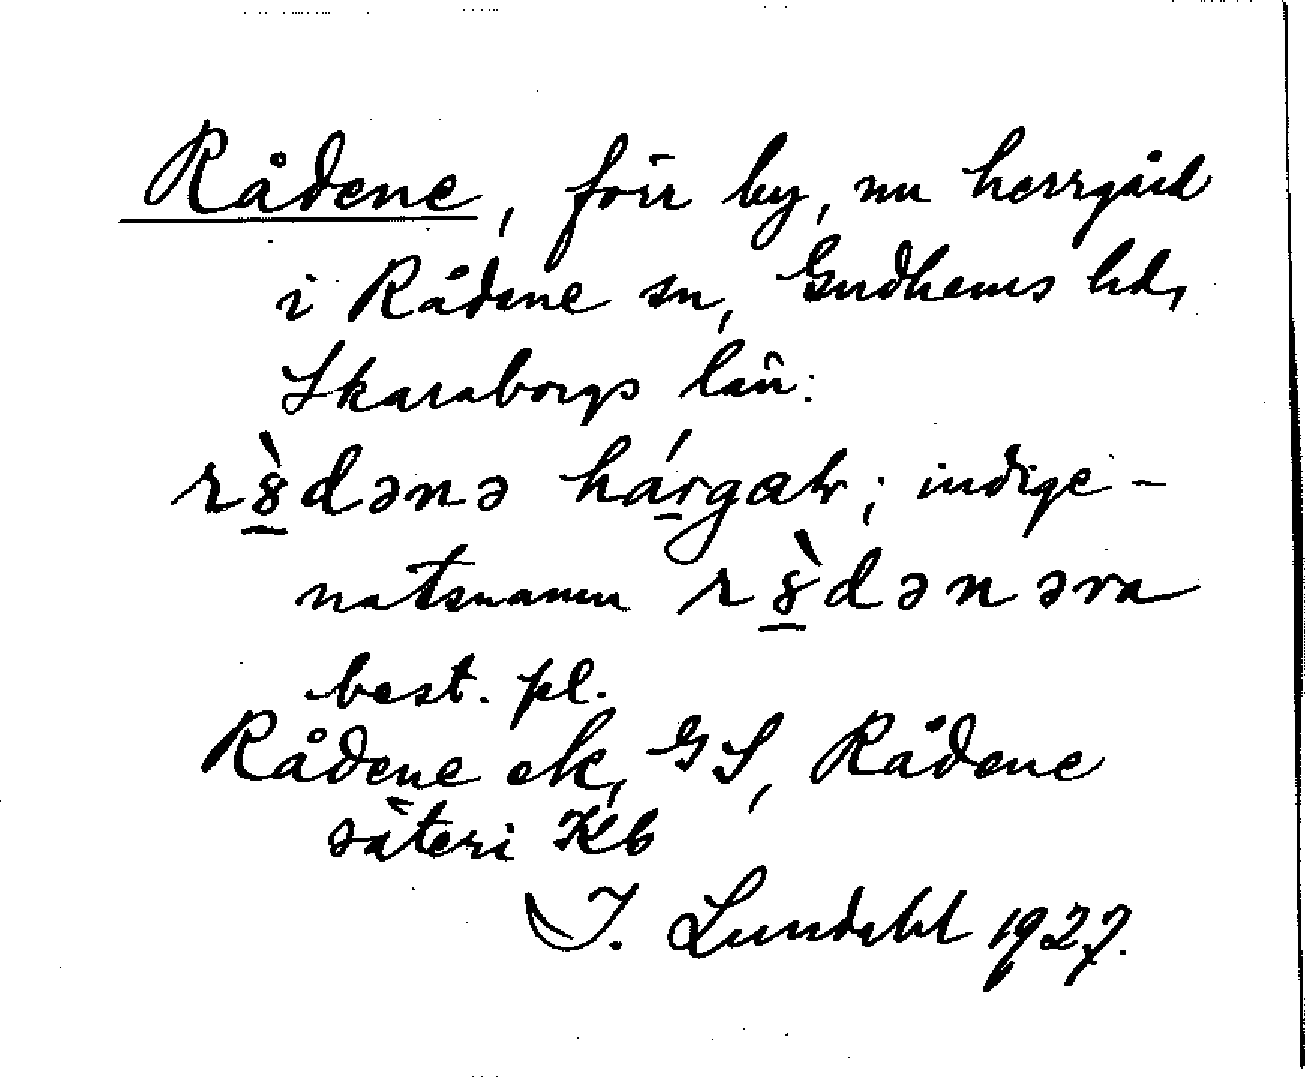 Rådene, förr by, nu herrgård
i Rådene sn, Gudhems hd,
Skaraborgs län:
r8̠̀dənə hár̠gaɫ; indige-
natsnamn r8̠̀dənəra
best. pl.
Rådene ek, GS, Rådene
säteri Kb
I. Lundahl 1927.